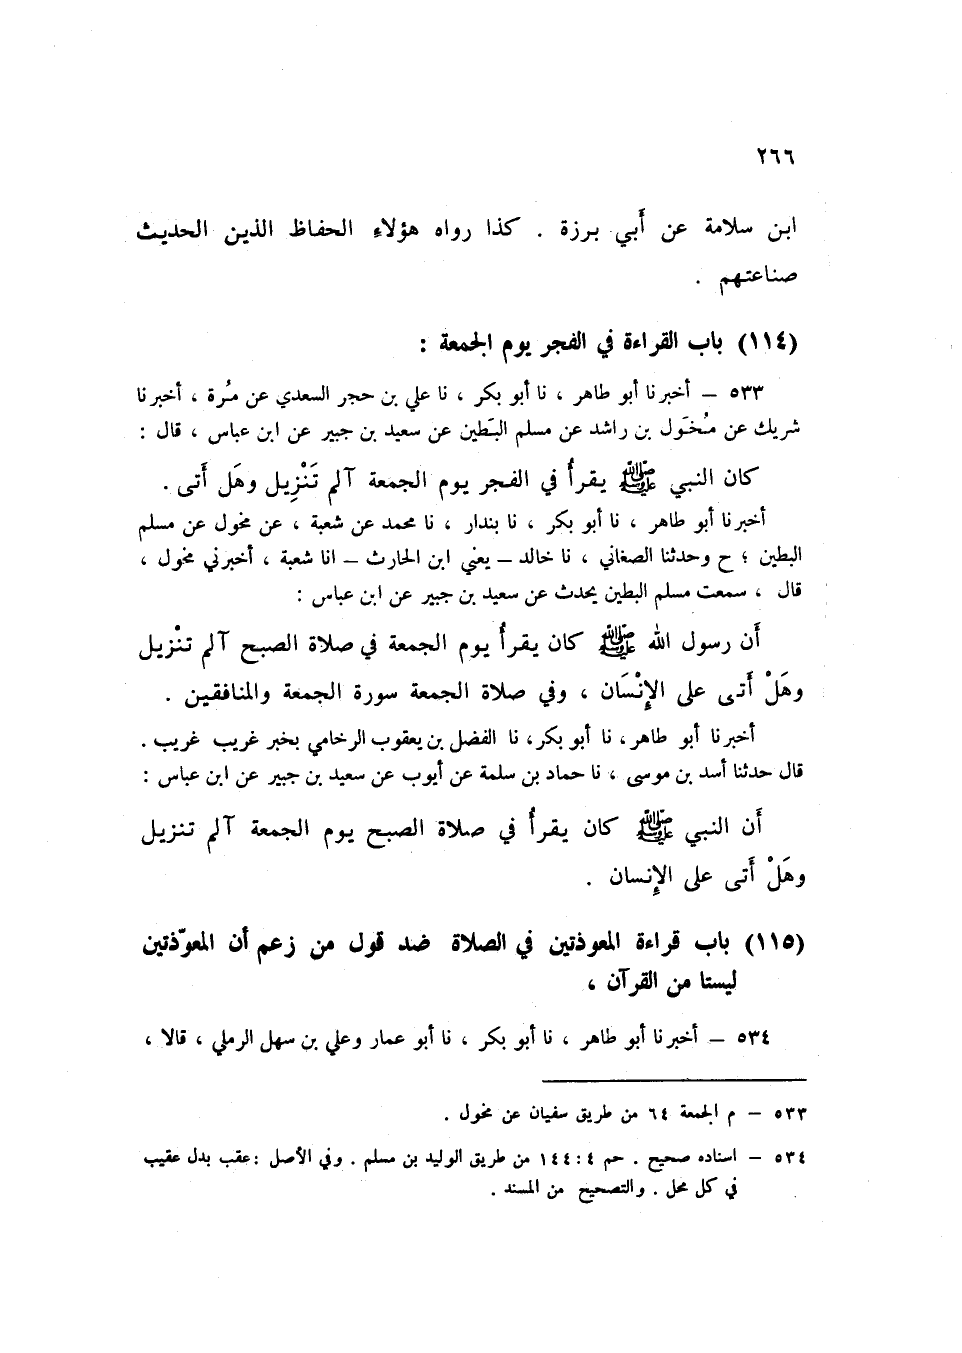 ٢٦٦
ابن سلامة عن أَبي برزة . كذا رواه هؤلاءِ الحفاظ الذين الحديث
صناعتهم .
(١١٤) باب القراءة في الفجر يوم الجمعة :
٥٣٣ – أخبرنا أبو طاهر ، نا أبو بكر ، نا علي بن حجر السعدي عن مُرة ، أخبرنا
شريك عن مُخَول بن راشد عن مسلم البَطين عن سعيد بن جبير عن ابن عباس ، قال :
كان النبي ﷺ يقرأُ في الفجر يوم الجمعة آلم تَنْزِيل وهَل أَتى .
أخبرنا أبو طاهر ، نا أبو بكر ، نا بندار ، نا محمد عن شعبة ، عن مخول عن مسلم
البطين ؛ ح وحدثنا الصغاني ، نا خالد – يعني ابن الحارث – انا شعبة ، أخبرني مخول ،
قال ، سمعت مسلم البطين يحدث عن سعيد بن جبير عن ابن عباس :
أَن رسول الله ﷺ كان يقرأُ يوم الجمعة في صلاة الصبح آلم تنْزيل
وهَلْ أَتى على الإِنْسَان ، وفي صلاة الجمعة سورة الجمعة والمنافقين .
أخبرنا أبو طاهر، نا أبو بكر، نا الفضل بن يعقوب الرخامي بخبر غريب غريب .
قال حدثنا أسد بن موسى ، نا حماد بن سلمة عن أيوب عن سعيد بن جبير عن ابن عباس :
أَن النبي ﷺ كان يقرأُ في صلاة الصبح يوم الجمعة آلم تنزيل
وهَلْ أَتى على الإِنسان .
(١١٥) باب قراءة المعوذتين في الصلاة ضد قول من زعم أن المعوّذتين
ليستا من القرآن ،
٥٣٤ – أخبرنا أبو طاهر ، نا أبو بكر ، نا أبو عمار وعلي بن سهل الرملي ، قالا ،
٥٣٣ – م الجمعة ٦٤ من طريق سفيان عن مخول .
٥٣٤ – اسناده صحيح . حم ٤ : ١٤٤ من طريق الوليد بن مسلم . وفي الأصل : عقب بدل عقيب
في كل محل . والتصحيح من المسند .